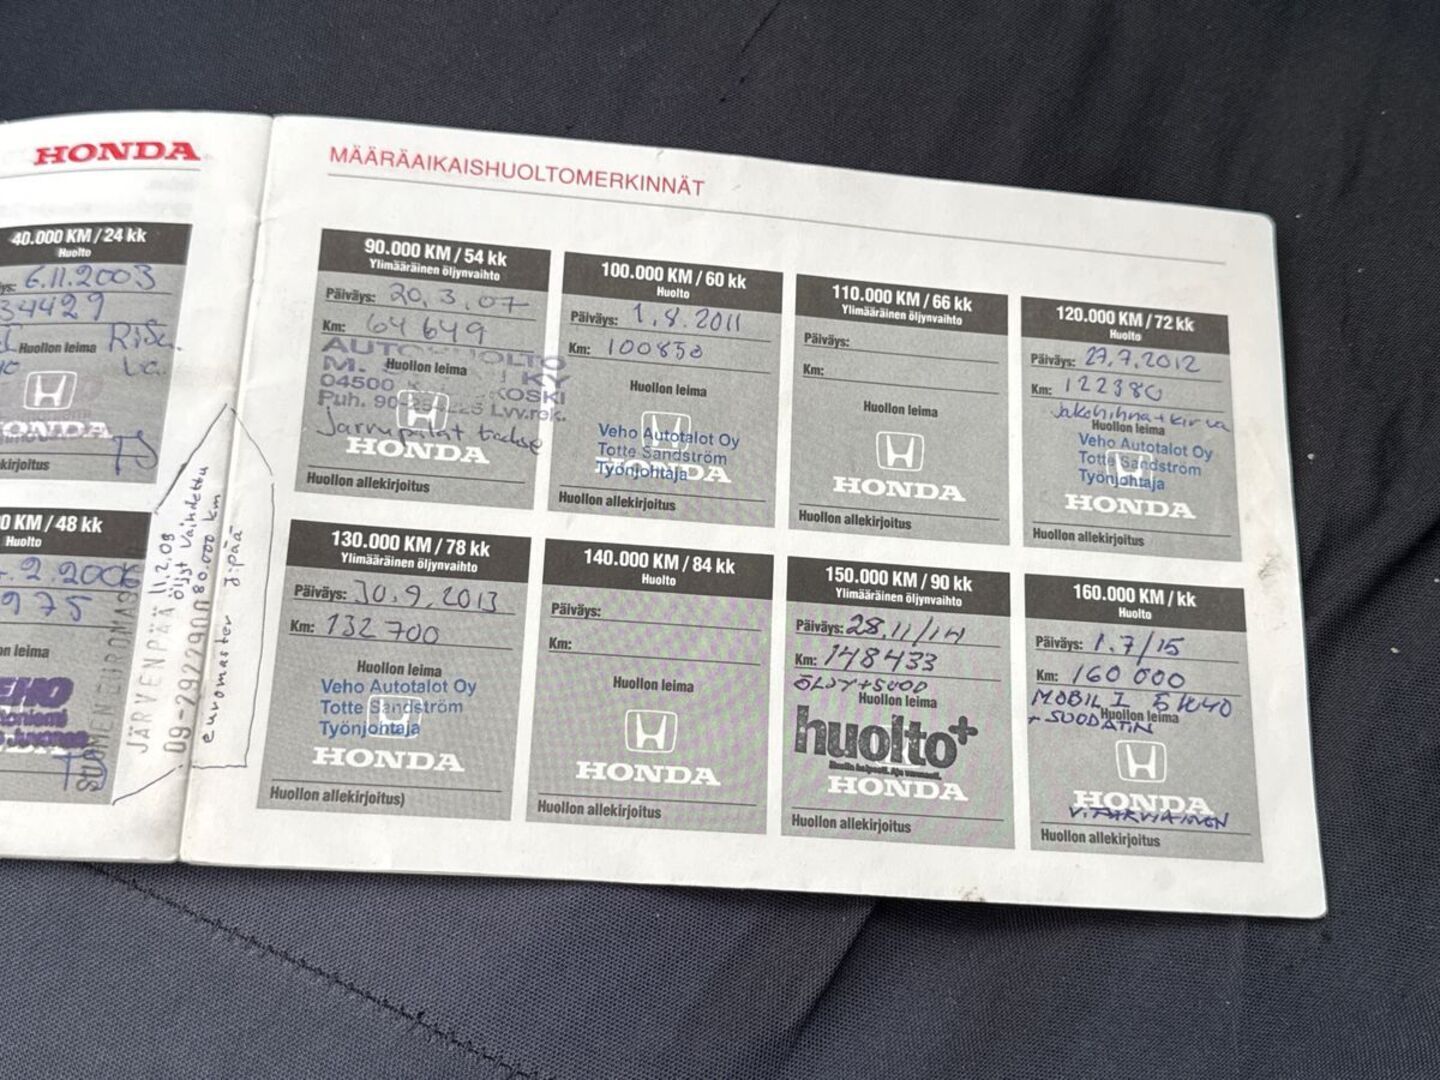 HONDA
40.000 KM / 24 kk
Huolto
6.11.2003
34429
Huollon leima
HONDA
TS
kirjoitus
0 KM / 48 kk
Huolto
2.2006
975
n leima
JÄRVENPÄÄ 11.2.08
öljyt vaihdettu
80.000 km
09-2922900
euromaster J:pää
MÄÄRÄAIKAISHUOLTOMERKINNÄT
90.000 KM / 54 kk
Ylimääräinen öljynvaihto
Päiväys: 20.3.07
Km: 64 649
Huollon leima
04500
Puh. 90- Lvv.rek.
Jarrupalat taakse
HONDA
Huollon allekirjoitus
100.000 KM / 60 kk
Huolto
Päiväys: 1.8.2011
Km: 100850
Huollon leima
Veho Autotalot Oy
Totte Sandström
Työnjohtaja
HONDA
Huollon allekirjoitus
110.000 KM / 66 kk
Ylimääräinen öljynvaihto
Päiväys:
Km:
Huollon leima
HONDA
Huollon allekirjoitus
120.000 KM / 72 kk
Huolto
Päiväys: 27.7.2012
Km: 122380
Jakohihna +
Huollon leima
Veho Autotalot Oy
Totte Sandström
Työnjohtaja
HONDA
Huollon allekirjoitus
130.000 KM / 78 kk
Ylimääräinen öljynvaihto
Päiväys: 30.9.2013
Km: 132 700
Huollon leima
Veho Autotalot Oy
Totte Sandström
Työnjohtaja
HONDA
Huollon allekirjoitus)
140.000 KM / 84 kk
Huolto
Päiväys:
Km:
Huollon leima
HONDA
Huollon allekirjoitus
150.000 KM / 90 kk
Ylimääräinen öljynvaihto
Päiväys: 28.11/14
Km: 148433
ÖLJY+SUOD
Huollon leima
huolto+
HONDA
Huollon allekirjoitus
160.000 KM / kk
Huolto
Päiväys: 1.7/15
Km: 160 000
MOBIL 1 5W40
+ SUODATIN
Huollon leima
HONDA
Huollon allekirjoitus